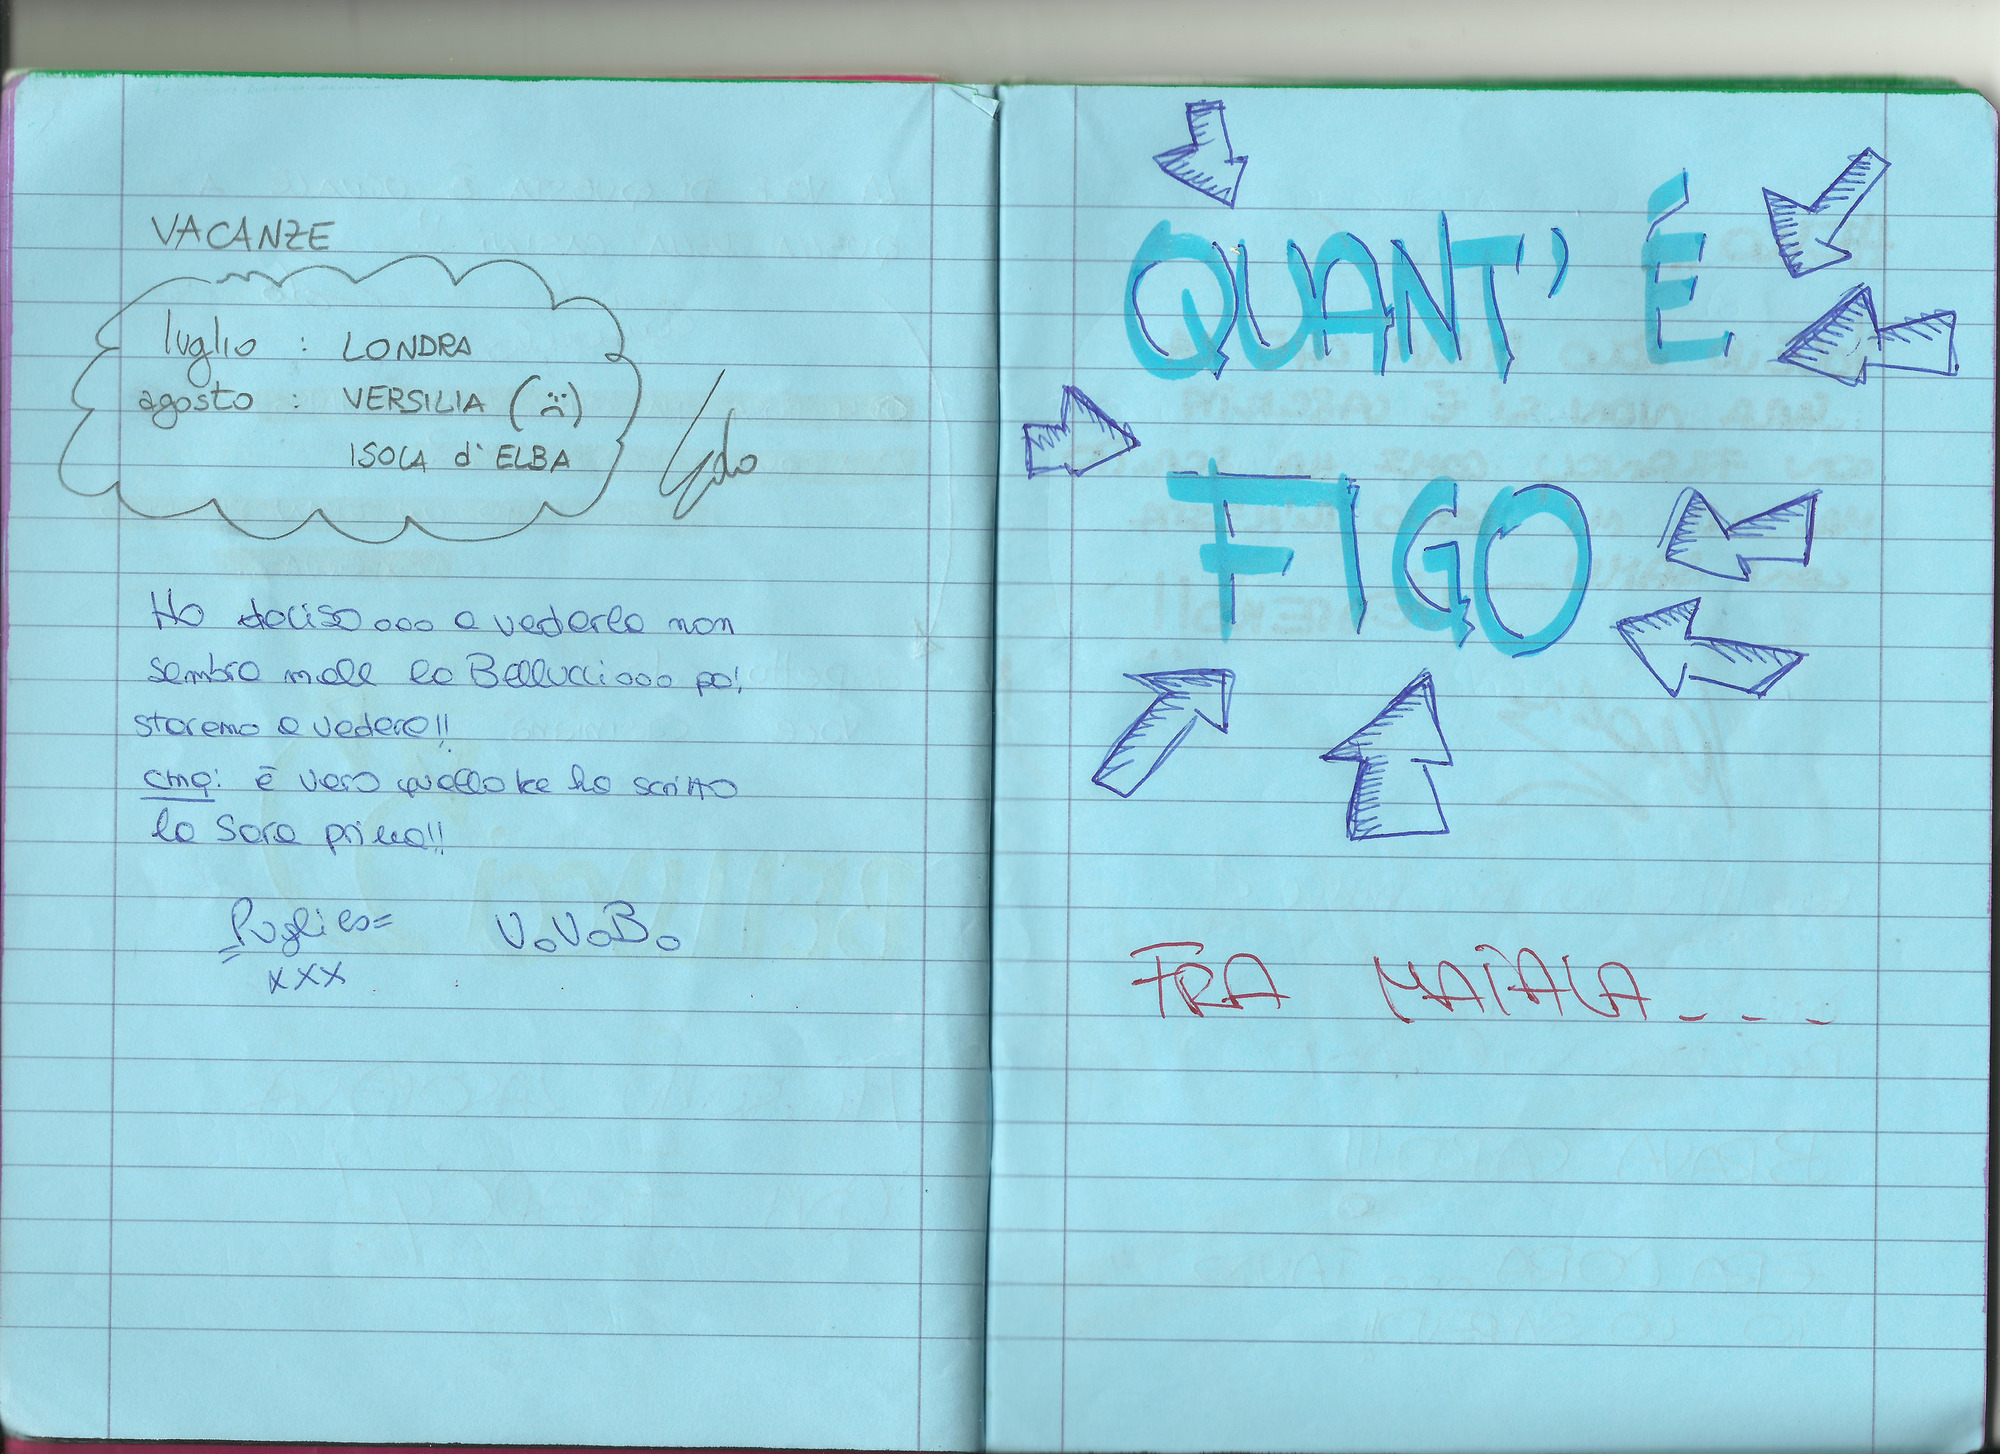 VACANZE
luglio : LONDRA
agosto : VERSILIA ( )
ISOLA d'ELBA
Edo
Ho deciso ooo a vederla non
sembra male la Bellucci ooo poi
staremo a vedere!!
cmq: è vero quello ke ha scritto
la Sara prima!!
Puglies=
xxx
V.V.B.
QUANT' È
FIGO
FRA MAIALA _ _ _